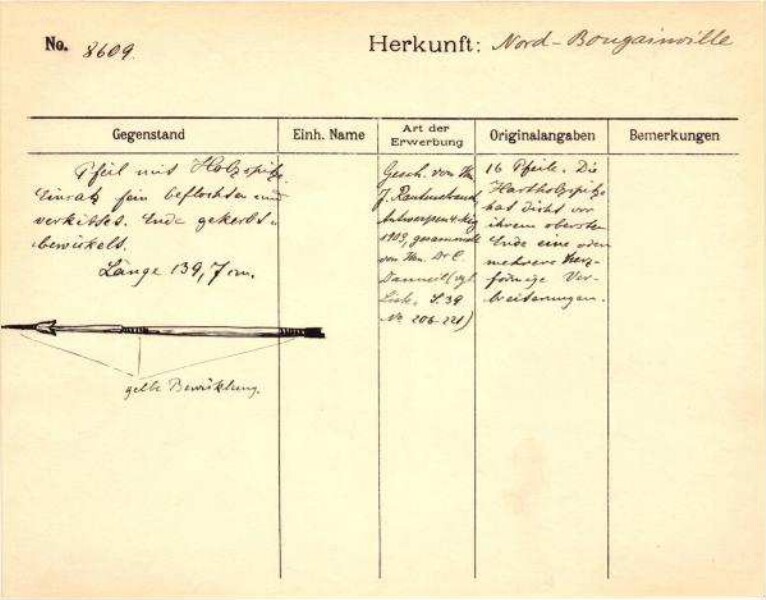 No. 8609.
Herkunft: Nord-Bougainville
Gegenstand
Einh. Name
Art der
Erwerbung
Originalangaben
Bemerkungen
Pfeil mit Holzspitze.
Einsatz fein beflochten und
verkittet. Ende gekerbt u.
bewickelt.
Länge 139,7 cm.
gelbe Bewicklung.
Gesch. von Hn.
J. Rautenstrauch
Antwerpen
1903, gesammelt
von Hn. Dr C.
Danneil (vgl.
Liste. S. 39
No 206-221)
16 Pfeile. Die
Hartholzspitze
hat dicht vor
ihrem obersten
Ende eine oder
mehrere herz-
förmige Ver-
breiterungen.